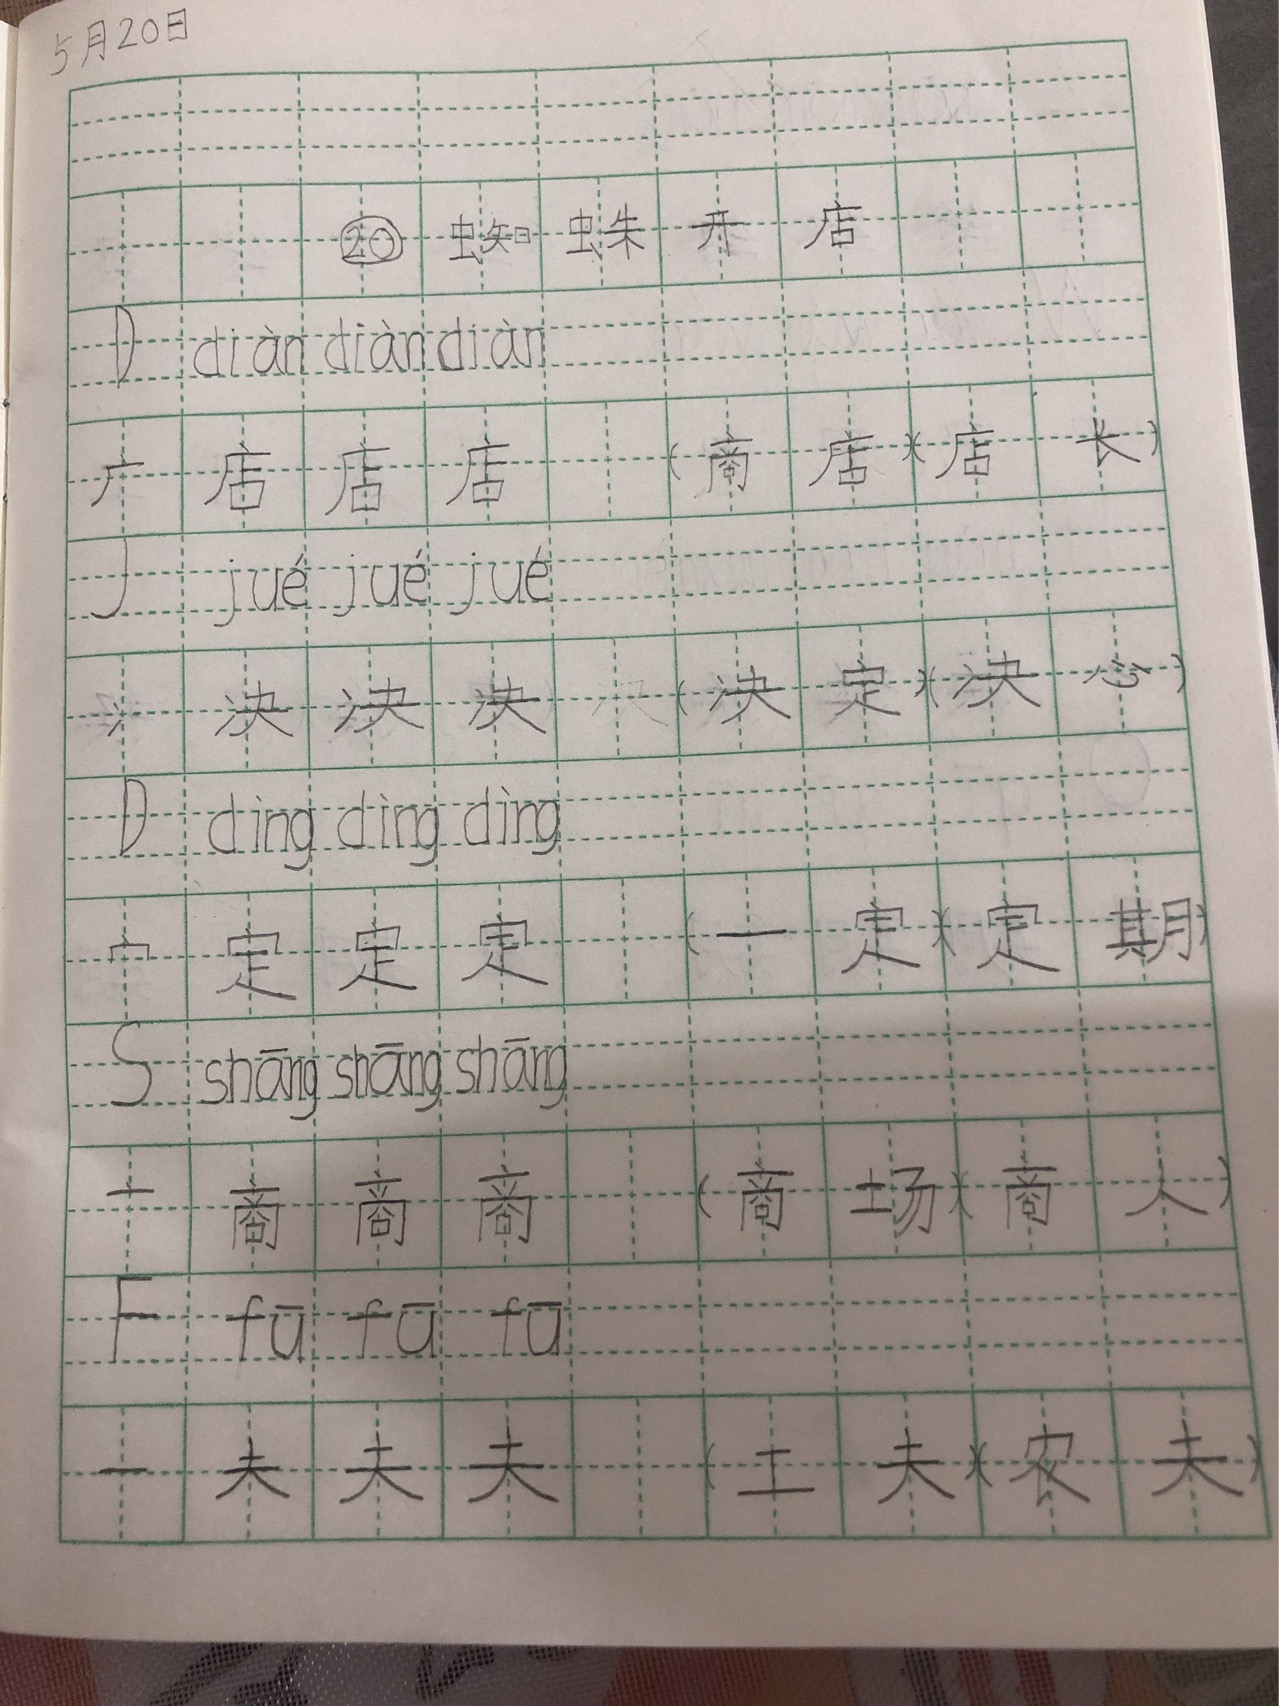 5月20日
⑳ 蜘蛛开店
D diàn diàn diàn
广 店 店 店 (商店)(店长)
J jué jué jué
冫 决 决 决 (决定)(决心)
D dìng dìng dìng
宀 定 定 定 (一定)(定期)
S shāng shāng shāng
亠 商 商 商 (商场)(商人)
F fū fū fū
一 夫 夫 夫 (工夫)(农夫)